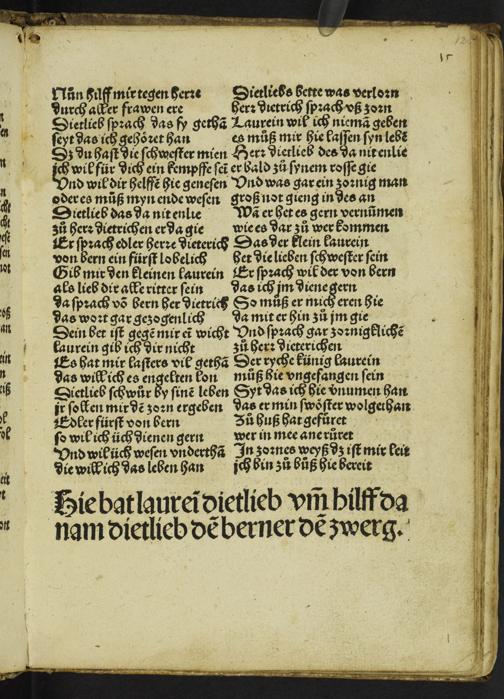 15
Nůn hilff mir tegen herre
durch aller frawen ere
Dietlieb sprach das sy gethā
seyt das ich gehöret han
Dz du hast die schwester mien
ich wil für dich ein kempffe sei
Vnd wil dir helffē hie genesen
oder es můß myn ende wesen
Dietlieb das da nit enlie
zů herr dietrichen er da gie
Er sprach edler herre dieterich
von bern ein fürst lobelich
Gib mir den kleinen laurein
als lieb dir alle ritter sein
da sprach võ bern her dietrich
das wort gar gezogenlich
Dein bet ist gegē mir eī wicht
laurein gib ich dir nicht
Es hat mir lasters vil gethā
das will ich es engelten lon
Dietlieb schwůr by sinē leben
jr sollen mir dē zorn ergeben
Edler fürst von bern
so wil ich üch dienen gern
Vnd wil üch wesen vnderthā
die will ich das leben han
Dietliebs bette was verlorn
herr dietrich sprach vß zorn
Laurein wil ich niemā geben
es můß mir hie lassen syn lebē
Herr dietlieb des da nit enlie
er bald zů synem rosse gie
Vnd was gar ein zornig man
groß not gieng in des an
Wā er het es gern vernūmen
wie es dar zů wer kommen
Das der klein laurein
het die lieben schwester sein
Er sprach wil der von bern
das ich jm diene gern
So můß er mich eren hie
da mit er hin zů jm gie
Vnd sprach gar zornigklichē
zů herr dieterichen
Der ryche künig laurein
můß hie vngefangen sein
Syt das ich hie vnumen han
das er min swöster wolgethan
Zů huß hat gefüret
wer in mee ane rüret
In zornes weyß dz ist mir leit
ich bin zů bůß hie bereit
Hie bat laureī dietlieb vm̄ hilff da
nam dietlieb dē berner dē zwerg.